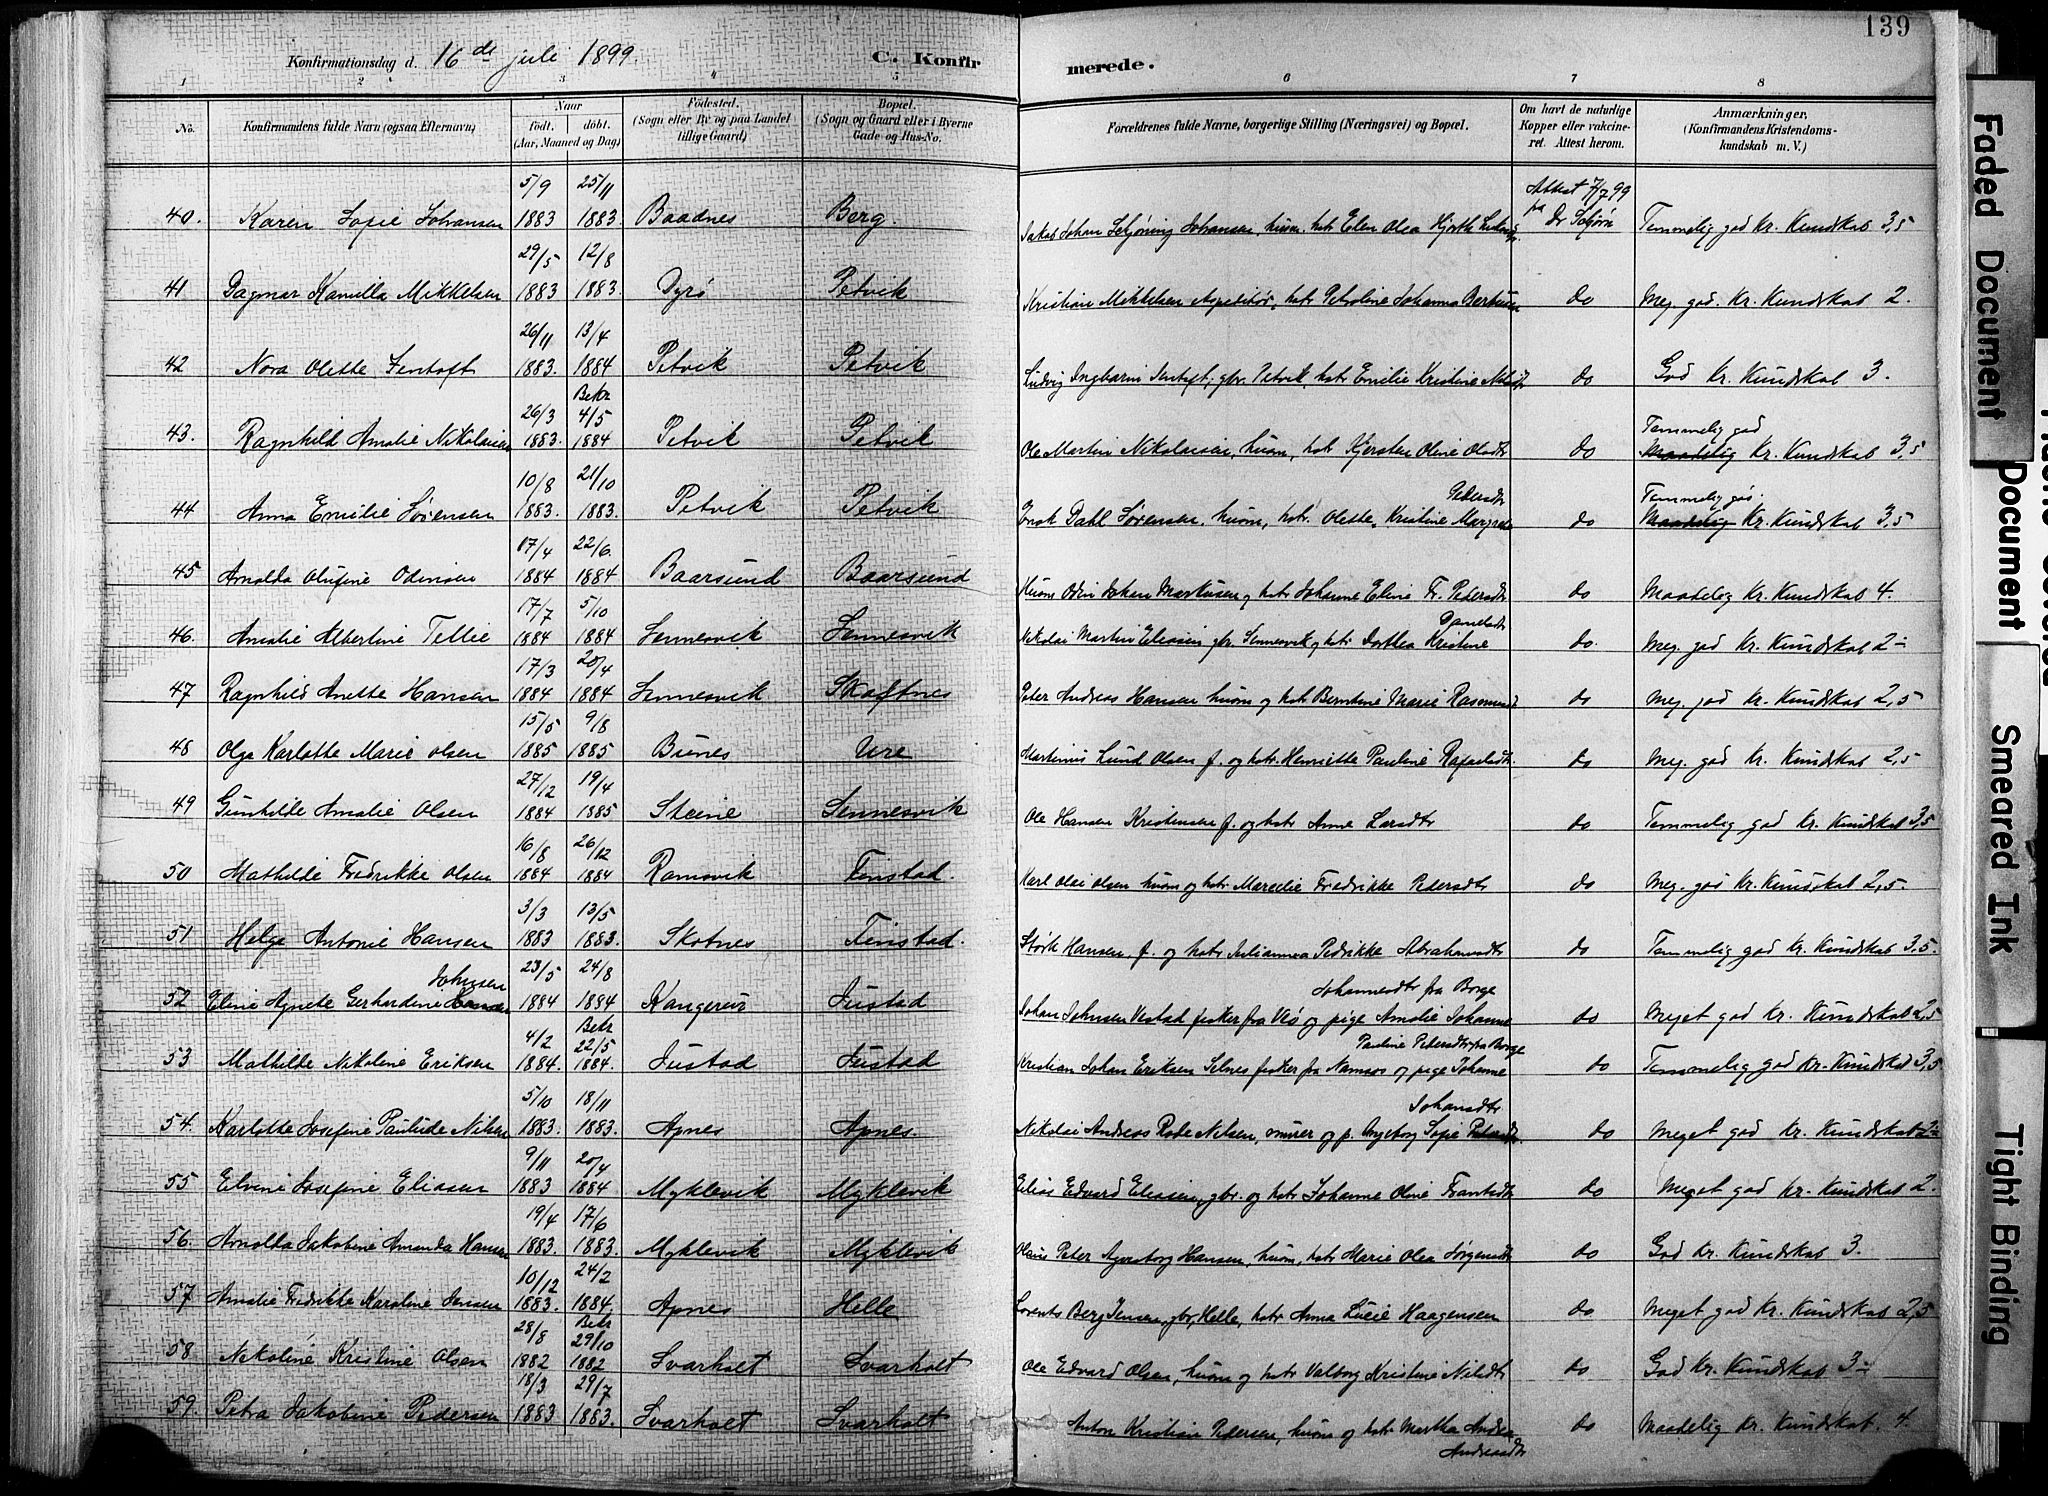 139
Konfirmationsdag d. 16de juli 1899. C. Konfirmerede.
1 2 3 4 5 6 7 8
No. Konfirmandens fulde Navn (ogsaa Efternavn) Naar født. døbt. (Aar, Maaned og Dag) Fødested. (Sogn eller By og paa Landet tillige Gaard) Bopæl. (Sogn og Gaard eller i Byerne Gade og Hus-No. Forældrenes fulde Navne, borgerlige Stilling (Næringsvei) og Bopæl. Om havt de naturlige Kopper eller vakcineret. Attest herom. Anmærkninger, (Konfirmandens Kristendomskundskab m. V.)
40. Karen Sofie Johansen 5/9 1883 25/11 1883. Baadnes Berg. Jakob Johan Schjöning Johansen, husm. hstr Elen Olea Hjorth Attest 7/7 99 fra Dr Temmelig god Kr. Kundskab 3,5
41 Dagmar Kamilla Mikkelsen 29/5 1883 12/8 1883. Dyrö Petvik Kristian Mikkelsen Expeditör, hstr Petroline Johanna do Meg. god. Kr. Kundskab 2.
42 Nora Olette Jentoft 26/11 1883. 13/4 1884 Petvik Petvik Ludvig Ingbarni Jentoft, gbr. Petvik, hstr Emilie Kristine do God Kr. Kundskab 3.
43. Ragnhild Amalie Nikolaisen 26/3 1883. Bekr 4/5 1884 Petvik Petvik Ole Martin Nikolaisen, husm, hstr Kjersten Oline Olsdtr do Temmelig god Maadelig Kr. Kundskab 3,5
44 Anna Emilie Sørensen 10/8 1883. 21/10 1883. Petvik Petvik Enok Dahl Sørensen, husm, hstr. Olette Kristine Margrete Pedersdtr do Temmelig god. Maadelig Kr. Kundskab 3,5
45 Arnolda Olufine Odinsen 17/4 1884 22/6. 1884 Baarsund Baarsund Husm Odin Johan Markusen og hstr Johanne Eline Fr. Pedersdtr do Maadelig Kr. Kundskab 4.
46. Amalie Albertine Tellie 17/7 1884 5/10 1884 Sennesvik Sennesvik Nikolai Martin Eliassen gbr. Sennesvik og hstr Dorthea Kristine Danielsdtr do. Meg. god Kr. Kundskab 2-
47 Ragnhild Anette Hansen 17/3 1884 20/4 1884 Sennesvik Skaftnes Peter Andreas Hansen husm og hstr Berntine Marie Rasmusd do Meg. god Kr. Kundskab 2,5
48 Olga Karlotte Marie Olsen 15/5 1885 9/8 1885 Bunes Ure Martinus Lund Olsen f. og hstr. Henriette Pauline Rafaelsdtr. do Meg. god Kr. Kundskab 2,5
49 Gunhilde Amalie Olsen 27/12 1884 19/4 1885 Steine Sennesvik Ole Hansen Kristensen f. og hstr Anne Larsdtr do Temmelig god Kr. Kundskab 3,5
50 Mathilde Fredrikke Olsen 16/8 1884 26/12 1884 Ramsvik Finstad. Karl Olai Olsen husm og hstr Marselie Fredrikke Pedersdtr do Meg. god Kr. Kundskab 2,5.
51 Helge Antonie Hansen 3/3 1883 13/5 1883. Skotnes Finstad. Størk Hansen, f. og hstr Julianna Pedrikke Abrahamsdtr do Temmelig god Kr. Kundskab 3,5.
52 Eline Agnete Gerhardine Johnsen 23/5 1884 24/8 1884 Justad Johan Johnsen Vestad fisker fra Vlö og pige Amalie Johanne Johannesdtr fra Borge do Meget god Kr. Kundskab 2,5
53 Mathilde Nikoline Eriksen 4/2 1884. Bekr 22/5 1884. Justad Justad Kristian Johan Eriksen Selnes fisker fra Namsos og pige Johanne Pauline Pedersdtr fra Borge do Temmelig god Kr. Kundskab 3,5
54. Karlotte Josefine Paulude Nilsen 5/10 1883. 18/11 1883. Apnes Apnes. Nikolai Andreas Rode Nilsen, murer og p. Ingeborg Sofie Johansdtr do Meget god Kr. Kundskab 2-
55 Elvine Josefine Eliasen 9/11 1883 20/4 1884 Myklevik Myklevik Elias Edvard Eliasen, gbr. og hstr Johanne Oline Frantsdtr do Meget god Kr. Kundskab 2.
56. Arnolda Jakobine Amanda Hansen 19/4 1883. 17/6 1883. Myklevik Myklevik Olaus Peter Hansen, husm, hstr Marie Olea Jörgensdtr do God Kr. Kundskab 3.
57 Amalie Fredrikke Karoline Jensen 10/12 1883. 24/2 1884. Apnes Helle Lorents Berg Jensen, gbr, Helle, hstr Anna Lucie Haagensen do Meget god Kr. Kundskab 2,5
58. Nikoline Kristine Olsen 28/8 1882 Bekr 29/10 1882 Svarholt Svarholt Ole Edvard Olsen, husm og hstr Valborg Kristine Nilsdtr do God Kr. Kundskab 3-
59. Petra Jakobine Pedersen 18/3 1883 29/7 1883. Svarholt Svarholt Anton Kristian Pedersen, husm og hstr Martha Andrea Andreasdtr do Maadelig Kr. Kundskab. 4.
Faded Document
Document
Smeared Ink
Tight Binding